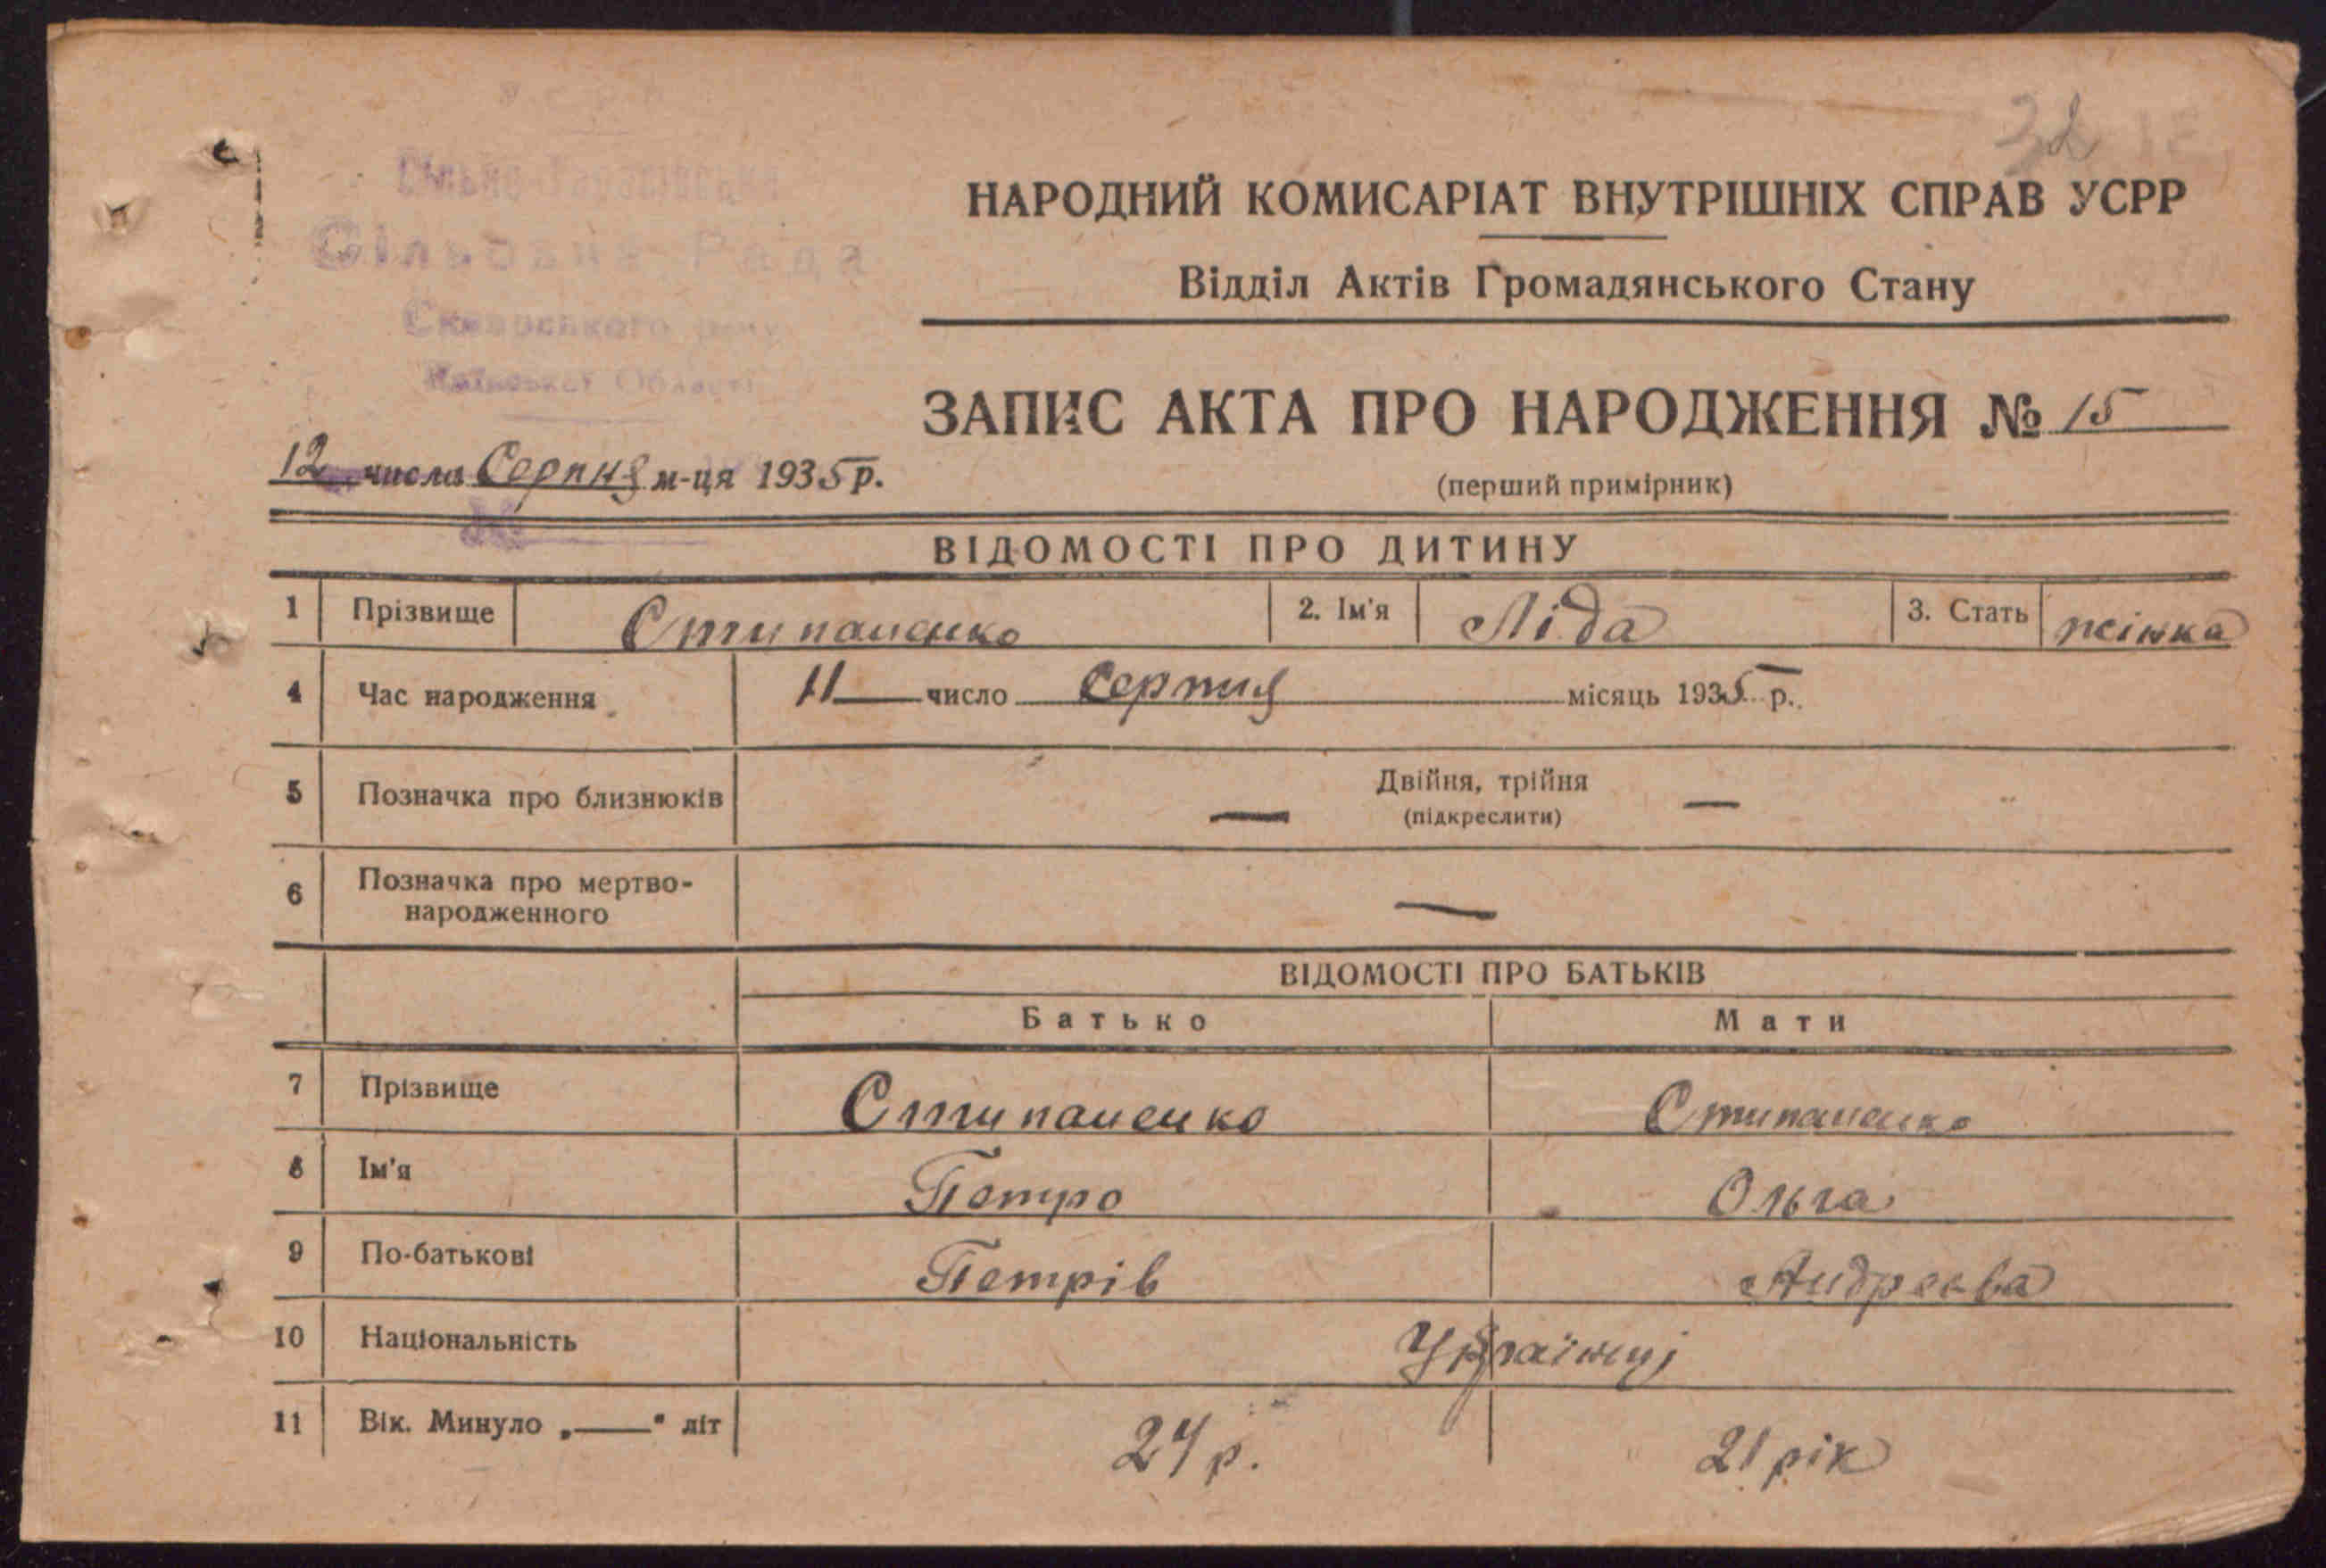 32
Сільовна Рада
Сквирського р-ну
Київської Області
НАРОДНИЙ КОМИСАРІАТ ВНУТРІШНІХ СПРАВ УСРР
Відділ Актів Громадянського Стану
ЗАПИС АКТА ПРО НАРОДЖЕННЯ № 15
(перший примірник)
12 числа Серпня м-ця 1935 р.
ВІДОМОСТІ ПРО ДИТИНУ
1 Прізвище Стипаненко 2. Ім'я Ліда 3. Стать жінка
4 Час народження 11 число Серпня місяць 1935 р.
5 Позначка про близнюків — Двійня, трійня —
(підкреслити)
6 Позначка про мертво-
народженного —
ВІДОМОСТІ ПРО БАТЬКІВ
Батько Мати
7 Прізвище Стипаненко Стипаненко
8 Ім'я Петро Ольга
9 По-батькові Петрів Андреева
10 Національність Українці
11 Вік. Минуло „——" літ 24 р. 21 рік